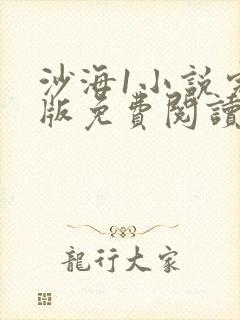 沙海1小說完
版免費閱讀
龍行大家